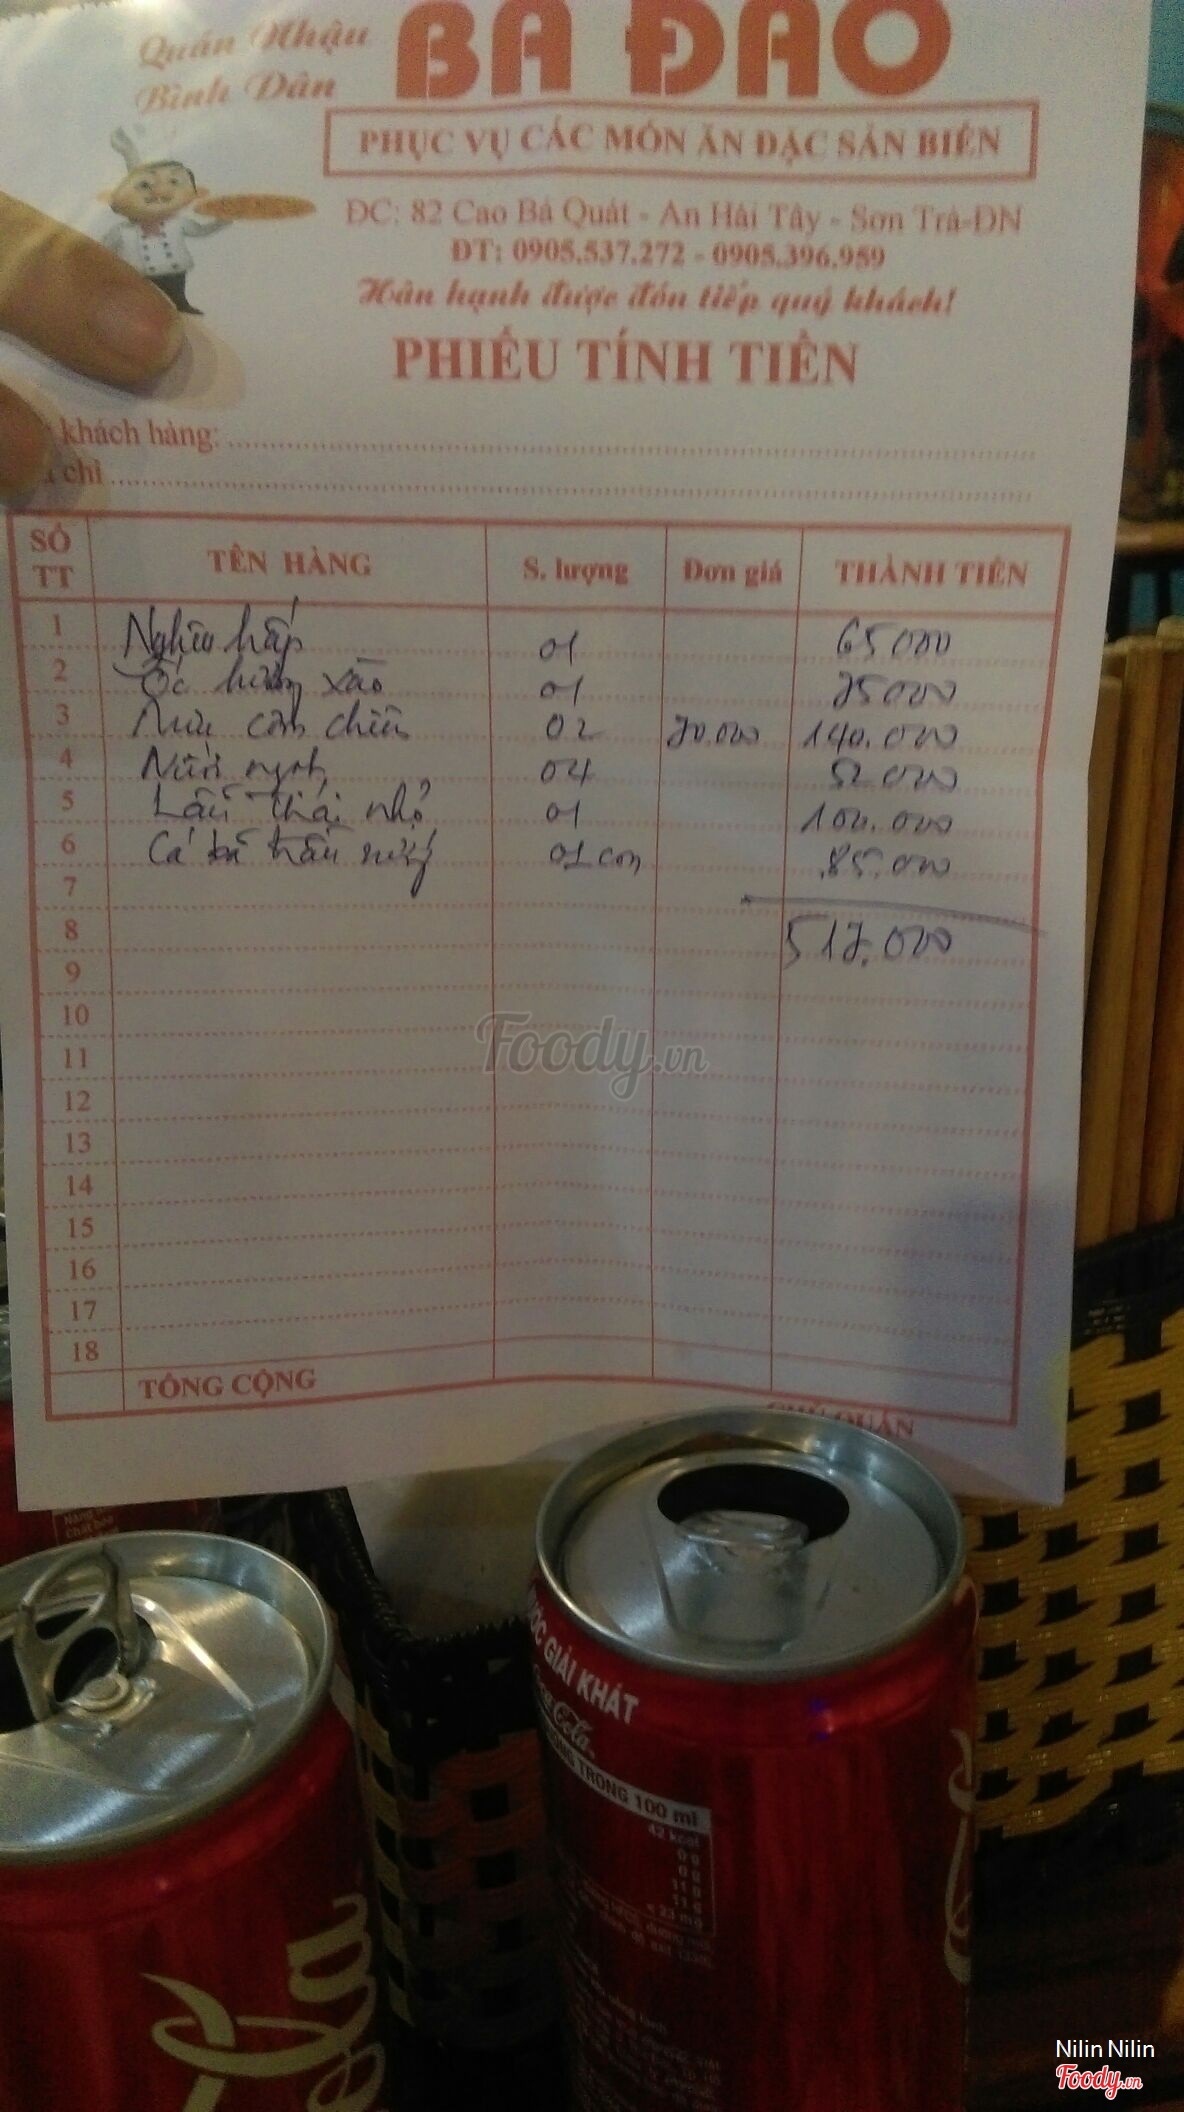 Quán Nhậu
Bình Dân
BA ĐAO
PHỤC VỤ CÁC MÓN ĂN ĐẶC SẢN BIỂN
ĐC: 82 Cao Bá Quát - An Hải Tây - Sơn Trà-ĐN
ĐT: 0905.537.272 - 0905.396.959
Hân hạnh được đón tiếp quý khách!
PHIẾU TÍNH TIỀN
khách hàng:
chỉ
SỐ TT TÊN HÀNG S. lượng Đơn giá THÀNH TIỀN
1 Nghêu hấp 01 65000
2 Ốc hương xào 01 75000
3 Mực cơm chiên 02 70.000 140.000
4 Nước ngọt 04 52000
5 Lẩu thái nhỏ 01 100.000
6 Cá bã trầu nướng 01 con 85.000
7
8 517.000
9
10
11
12
13
14
15
16
17
18
TỔNG CỘNG
CHỦ QUÁN
Foody.vn
GIẢI KHÁT
Coca-Cola
TRONG 100 ml
42 kcal
0 g
0 g
11 g
11 g
Nilin Nilin
Foody.vn